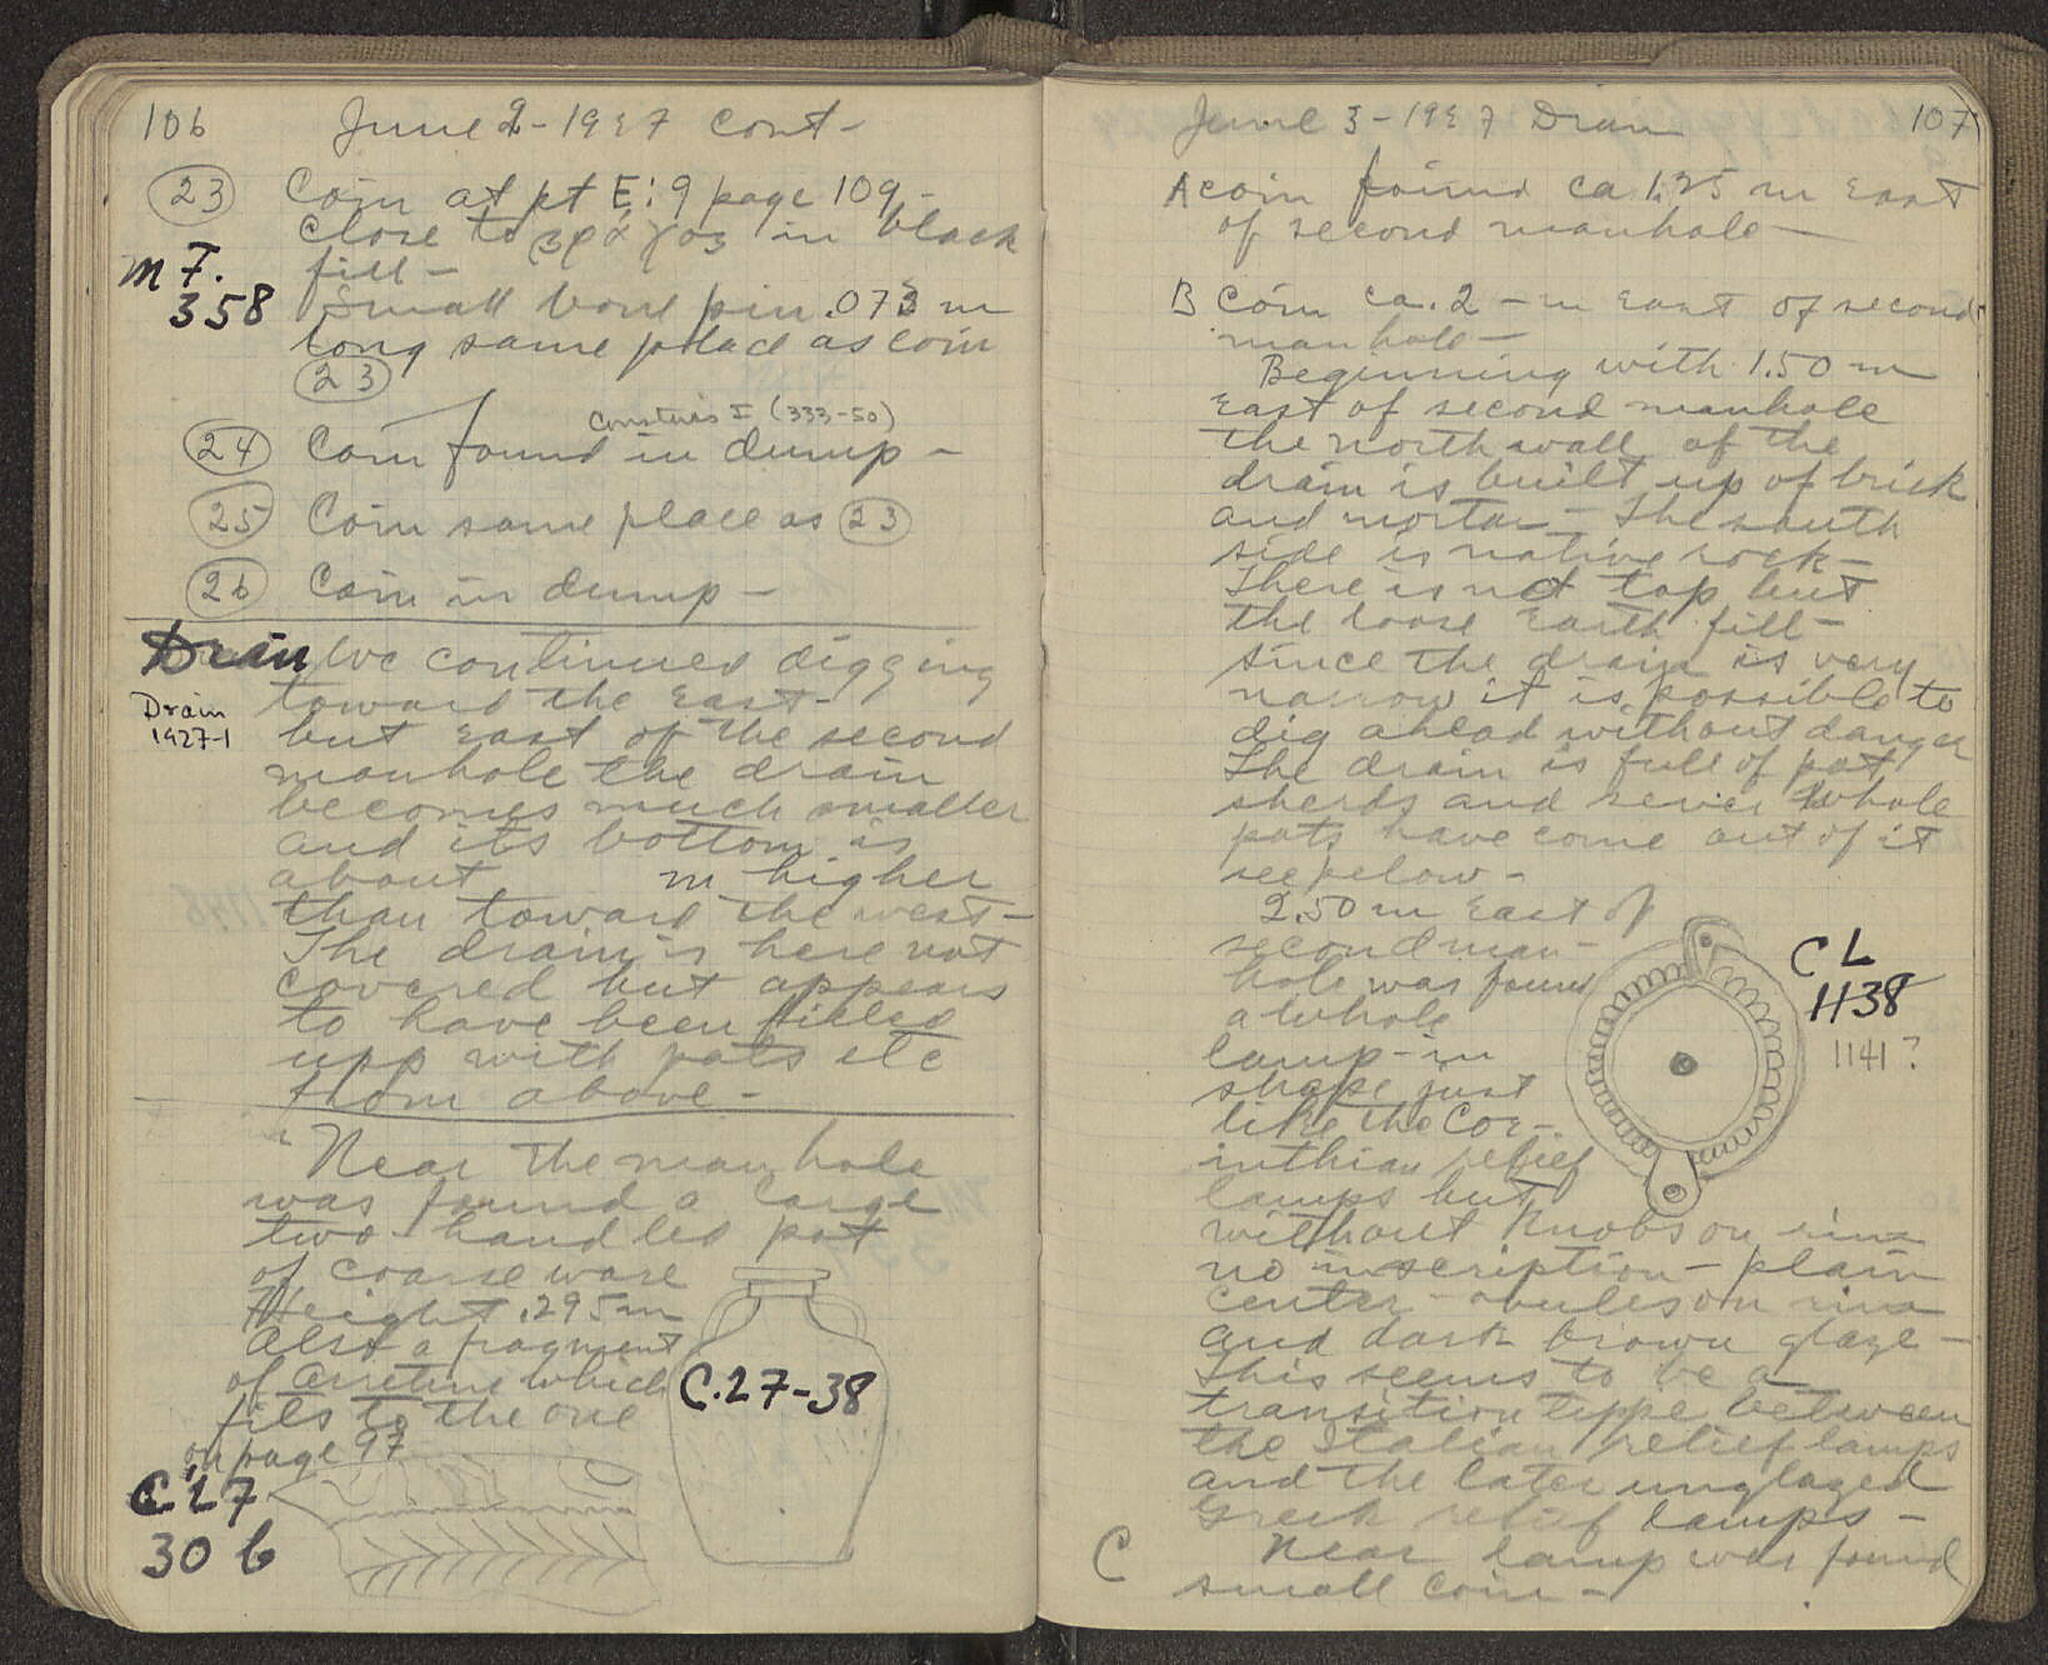 106 June 2-1927 cont-
(23) Coin at pt E:9 page 109-
close to in black
fill-
MF.
358
Small bone pin .073 m
long same place as coin
(23)
Constans I (333-50)
(24) Coin found in dump-
(25) Coin same place as (23)
(26) Coin in dump-
Drain We continued digging
toward the East-
Drain
1927-1
but East of the second
manhole the drain
becomes much smaller
and its bottom is
about m higher
than toward the west-
The drain is here not
covered but appears
to have been filled
upp with pots etc
from above-
Near the manhole
was found a large
two-handled pot
of coarse ware
Height .295m
Also a fragment
of Arretine which
fits to the one
on page 97
C.27-38
C 27
30 b
June 3-1927 Drain 107
A coin found ca 1.25 m East
of second manhole-
B Coin ca. 2-m East of second
manhole-
Beginning with 1.50 m
East of second manhole
the north wall of the
drain is built up of brick
and mortar- The south
side is native rock-
There is not top but
the loose Earth fill-
since the drain is very
narrow it is possible to
dig ahead without danger
The drain is full of pot
sherds and whole
pots have come out of it
see below-
2.50 m East of
second man-
hole was found
a whole
lamp-in
shape just
like the Cor-
inthian relief
lamps but
without knobs on rim
no inscription-plain
center-ovules on rim
and dark brown glaze-
This seems to be a
transition type between
the Italian relief lamps
and the later unglazed
Greek relief lamps-
CL
1138
1141?
C Near lamp was found
small coin-